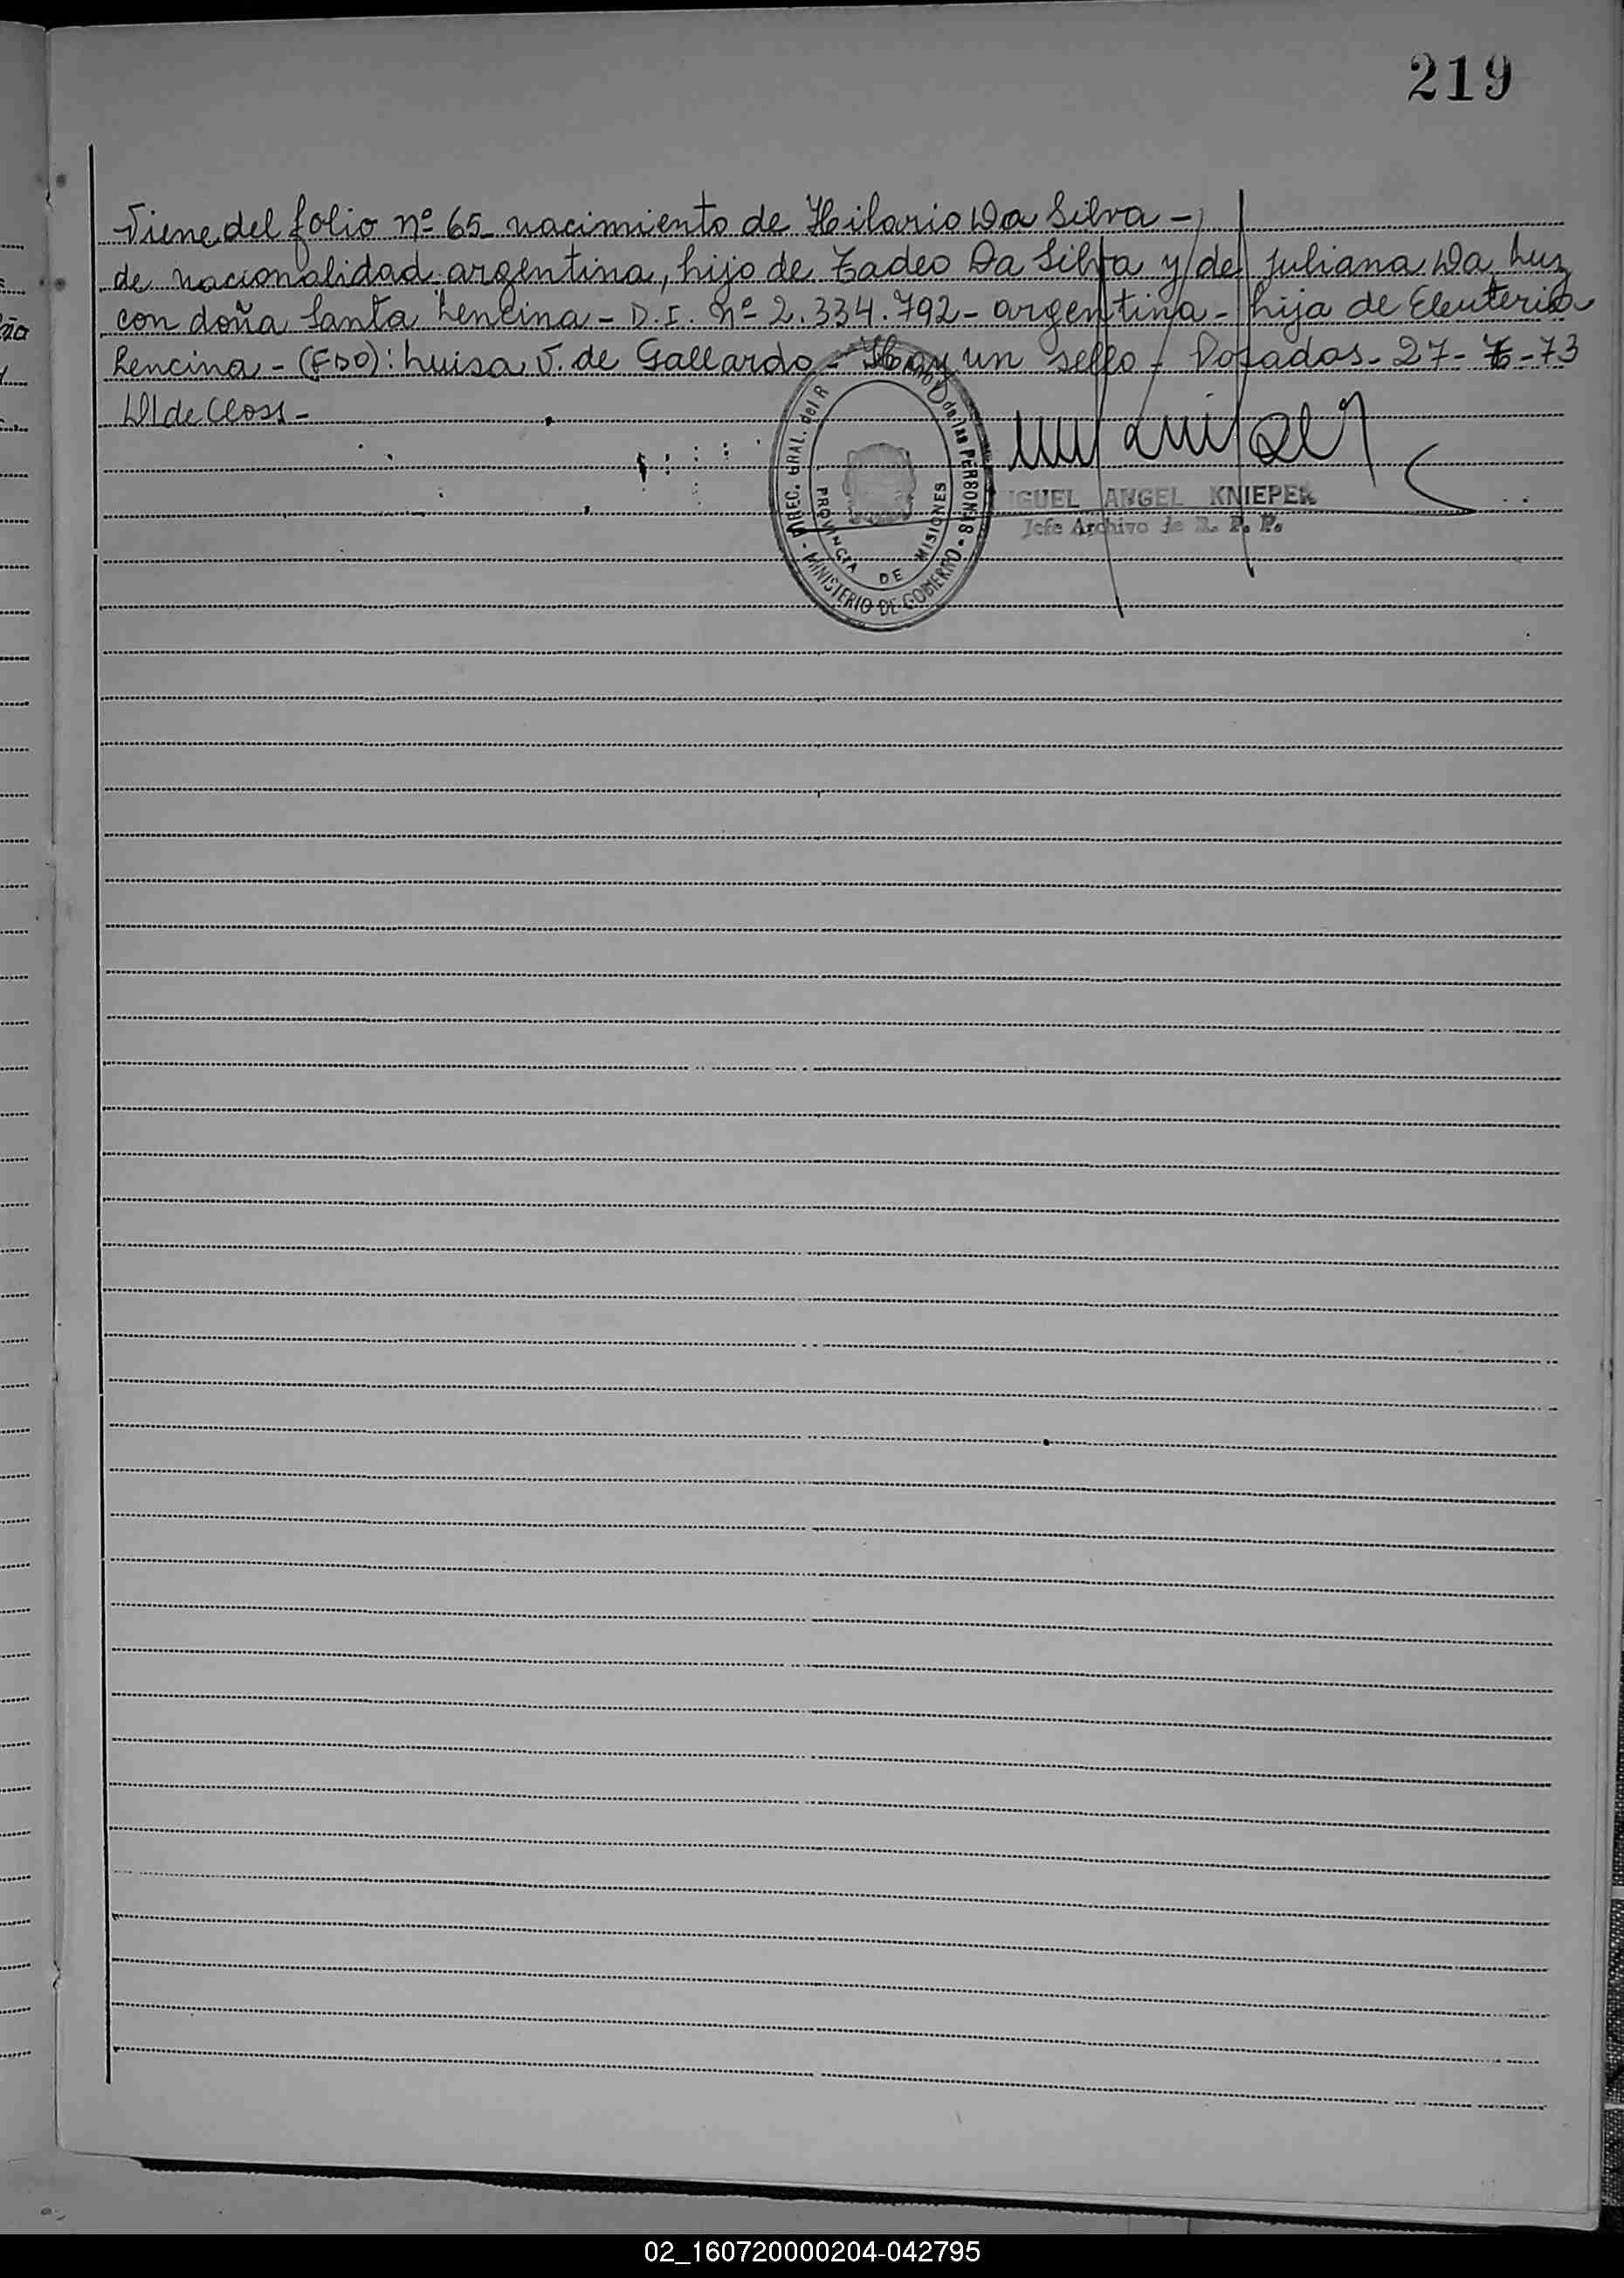 219
Viene del folio nº 65 - nacimiento de Hilario Da Silva -
de nacionalidad argentina, hijo de Tadeo Da Silva y de Juliana Da Luz
con doña Santa Lencina - D.I. nº 2.334.792 - argentina - hija de Eleuteria
Lencina - (FDO): Luisa V. de Gallardo - Hay un sello - Posadas - 27 - - 73
de Closs -
DIREC. GRAL. del R de las PERSONAS - MINISTERIO DE GOBIERNO -
PROVINCIA DE MISIONES
IGUEL ANGEL KNIEPER
Jefe Archivo de R. P. P.
02_160720000204-042795